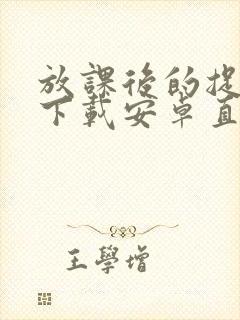 放課後的捉
下載安卓直
王學增